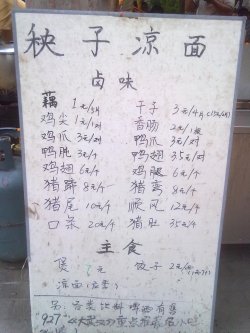 秧子凉面
卤味
藕 1元/片
干子 3元/4片
鸡尖 1元/对
香肠 2元/1根
鸡爪 3元/对
鸭爪 3元/对
鸭肫 3元/4
鸭翅 35元/对
鸡翅 6元/4
鸡腿 6元/4
猪蹄 8元/4
猪弯 8元/4
猪尾 10元/4
顺风 12元/4
口条 20元/4
猪肚 35元/4
主食
煲 元
饺子 2元/
凉面(
另: 各类饮料 啤酒有售
927 重点推荐